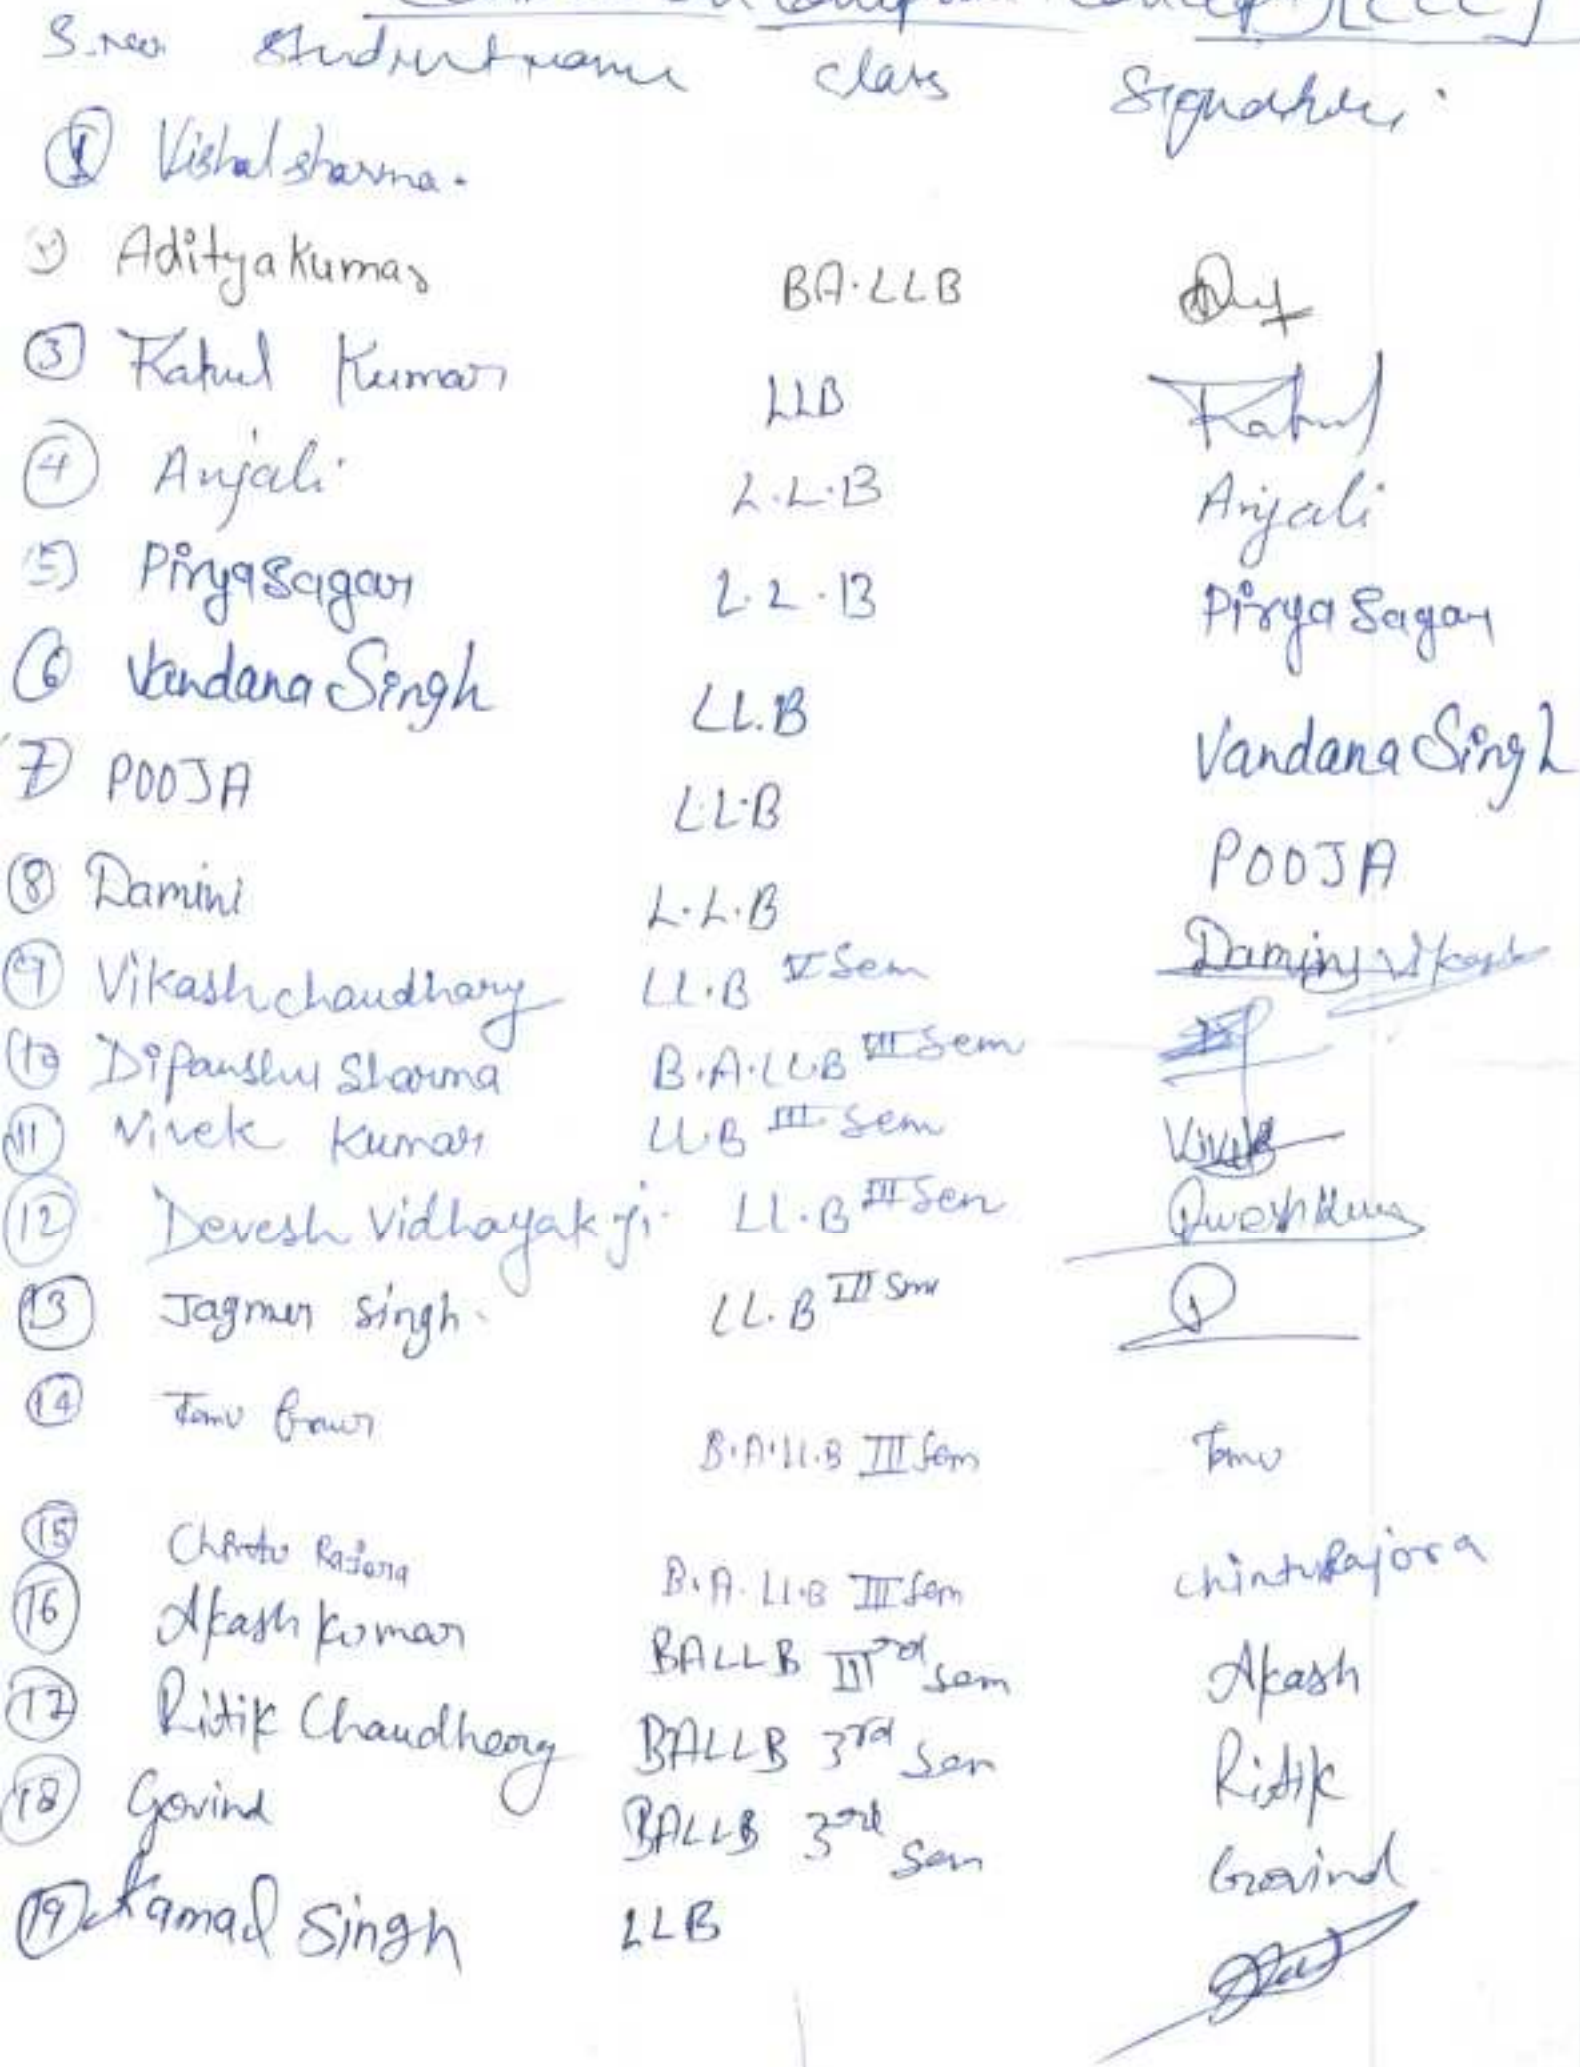 Computer Concept) [CCC]
S.no Student name class Signature
① Vishal sharma.
Aditya Kumar BA.LLB
③ Rahul Kumar LLB Rahul
④ Anjali L.L.B Anjali
5) Pirya Sagar L.L.B Pirya Sagar
⑥ Vandana Singh LL.B Vandana Singh
7) POOJA L.L.B POOJA
⑧ Damini L.L.B Damini
⑨ Vikash chaudhary LL.B V Sem Vikash
⑩ Dipanshu Sharma B.A.LL.B VII Sem
⑪ Vivek Kumar LL.B III Sem Vivek
⑫ Devesh Vidhayak ji. LL.B III Sem
⑬ Jagmer Singh. LL.B III Sem
⑭ Tanu Gaur B.A.LL.B III Sem Tanu
⑮ Chintu Rajora B.A.LL.B III Sem Chintu Rajora
⑯ Akash Kumar BALLB III rd Sem Akash
⑰ Ritik Chaudheary BALLB 3rd Sem Ritik
⑱ Govind BALLB 3rd Sem Govind
⑲ Kamal Singh LLB